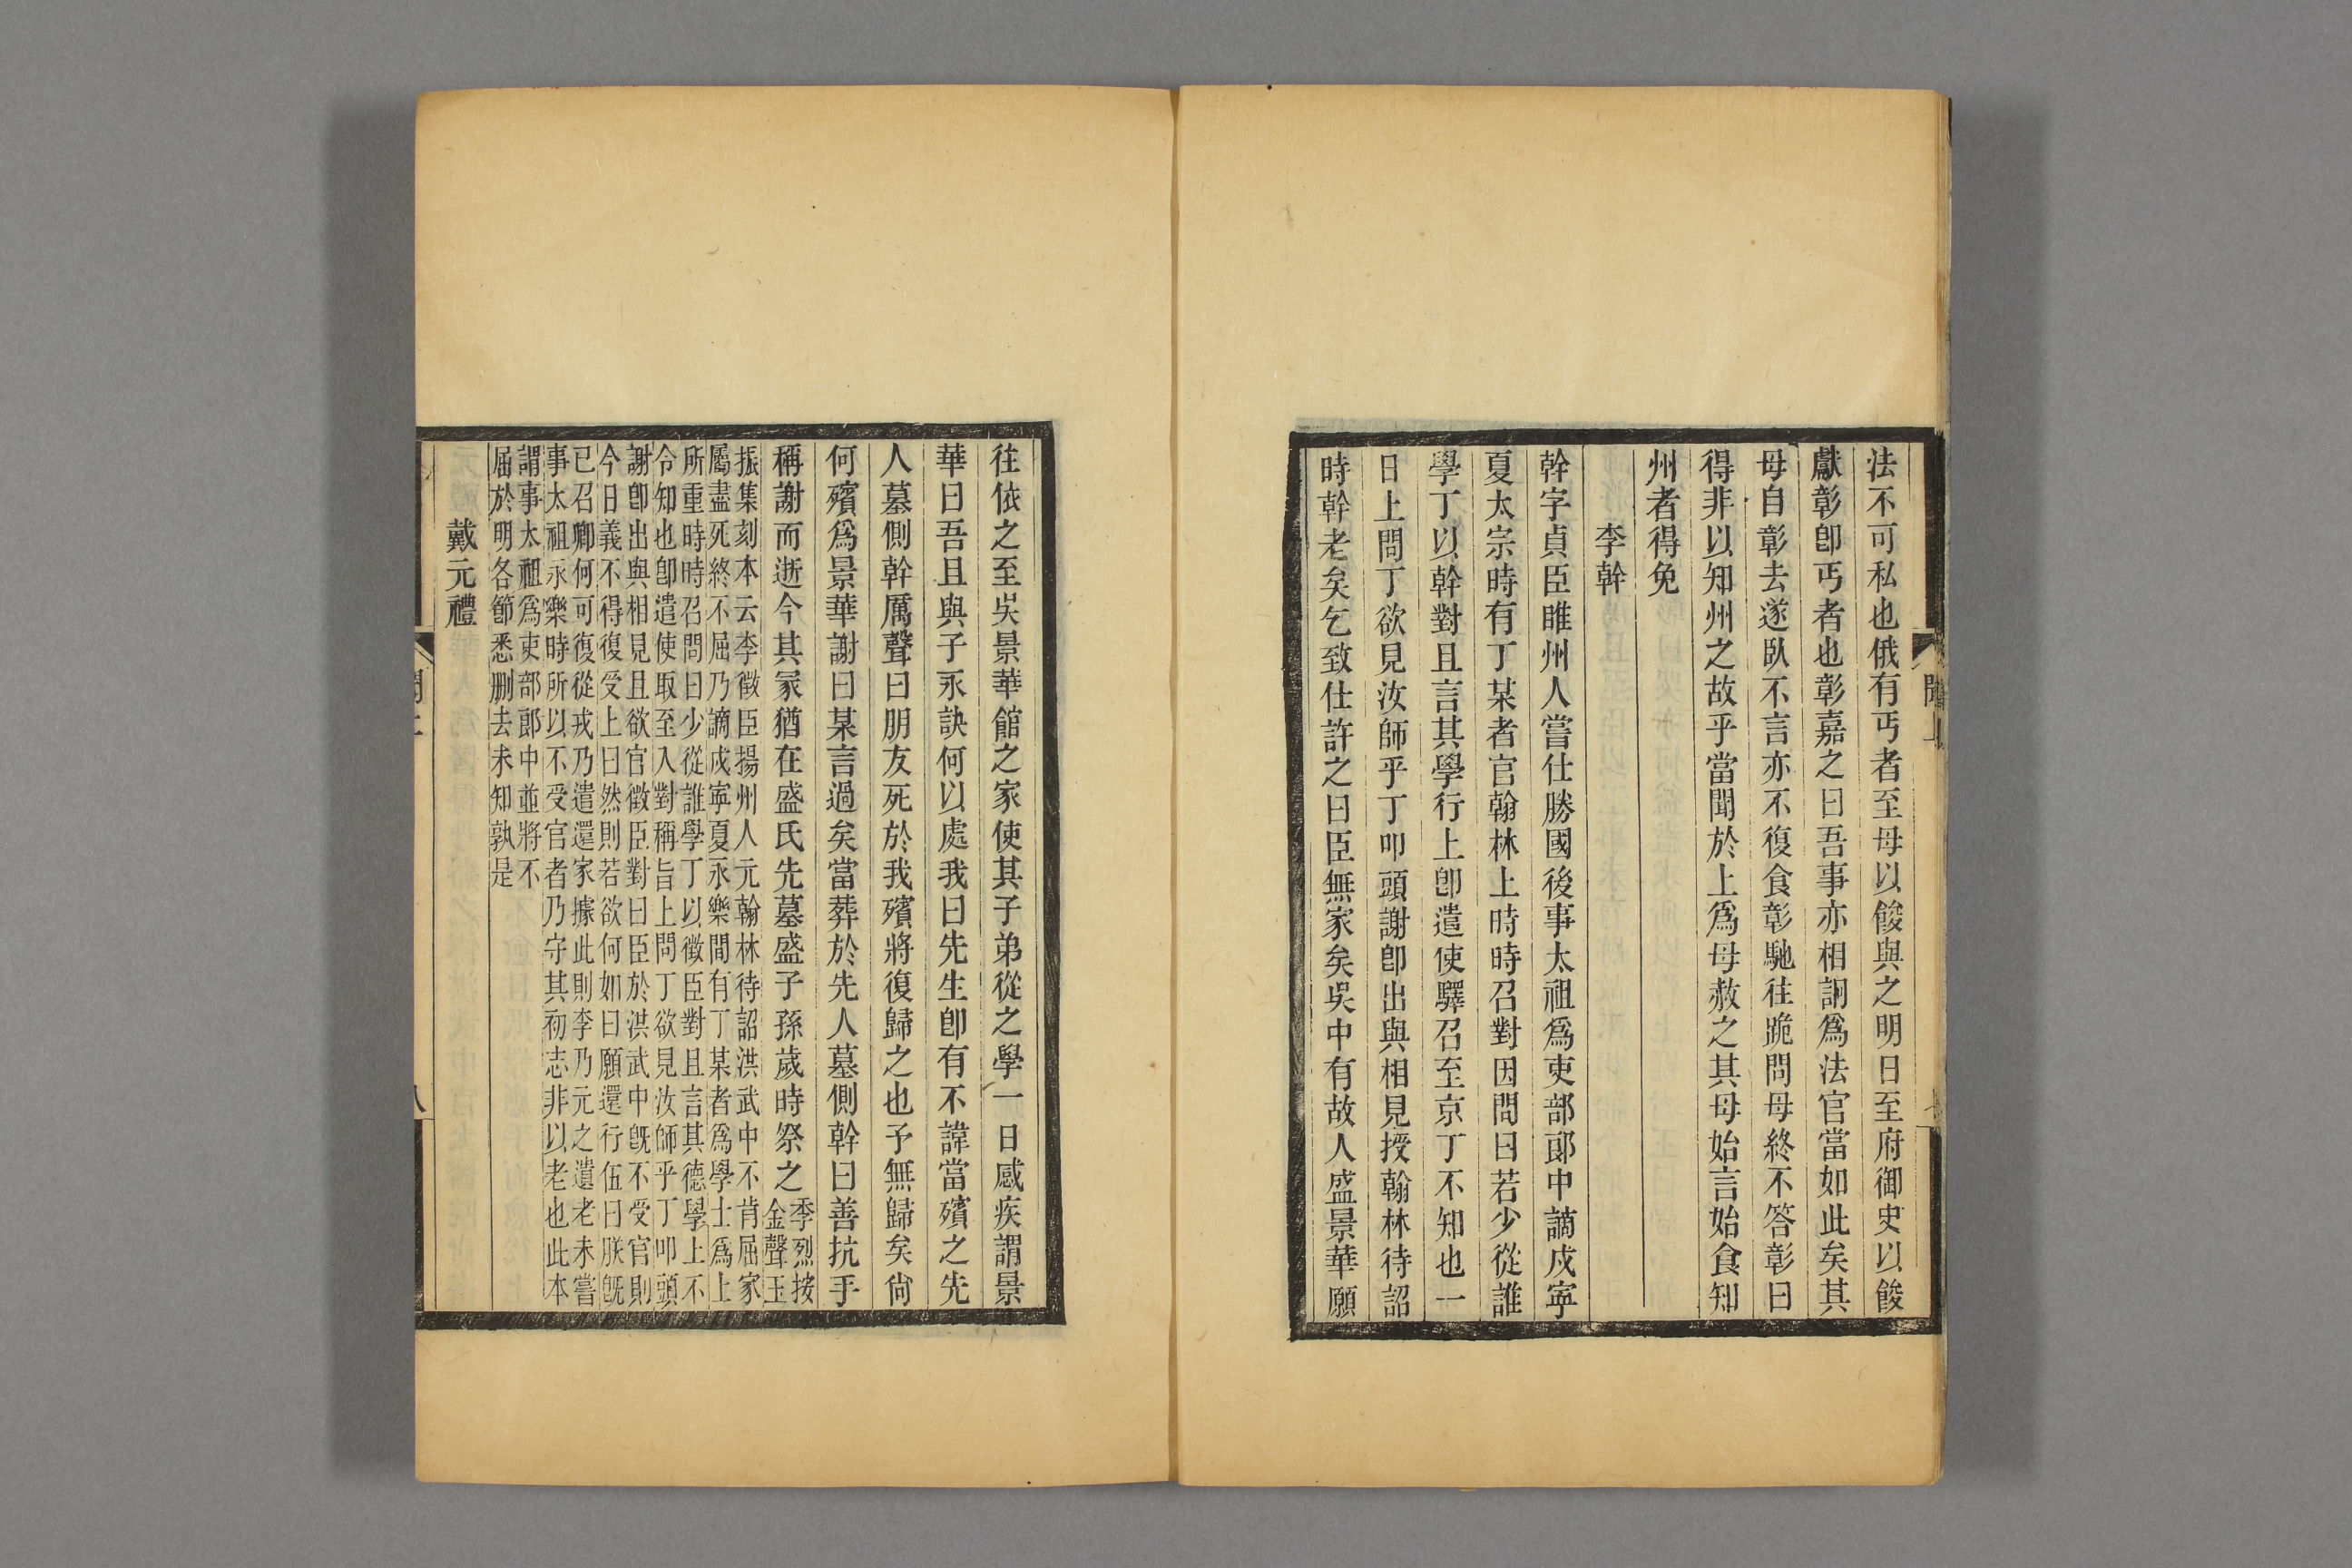 法不可私也俄有丐者至母以餕與之明日至府御史以餕
獻彰卽丐者也彰嘉之曰吾事亦相詗爲法官當如此矣其
母自彰去遂臥不言亦不復食彰馳往跪問母終不答彰曰
得非以知州之故乎當聞於上爲母赦之其母始言始食知
州者得免
李幹
幹字貞臣睢州人嘗仕勝國後事太祖爲吏部郞中謫戍寧
夏太宗時有丁某者官翰林上時時召對因問曰若少從誰
學丁以幹對且言其學行上卽遣使驛召至京丁不知也一
日上問丁欲見汝師乎丁叩頭謝卽出與相見授翰林待詔
時幹老矣乞致仕許之曰臣無家矣吳中有故人盛景華願
往依之至吳景華館之家使其子弟從之學一日感疾謂景
華曰吾且與子永訣何以處我曰先生卽有不諱當殯之先
人墓側幹厲聲曰朋友死於我殯將復歸之也予無歸矣尙
何殯爲景華謝曰某言過矣當葬於先人墓側幹曰善抗手
稱謝而逝今其冢猶在盛氏先墓盛子孫歲時祭之季烈按
金聲玉
振集刻本云李徵臣揚州人元翰林待詔洪武中不肯屈家
屬盡死終不屈乃謫戍寧夏永樂間有丁某者爲學士爲上
所重時時召問曰少從誰學丁以徵臣對且言其德學上不
令知也卽遣使取至入對稱旨上問丁欲見汝師乎丁叩頭
謝卽出與相見且欲官徵臣對曰臣於洪武中旣不受官則
今日義不得復受上曰然則若欲何如曰願還行伍曰朕旣
已召卿何可復從戎乃遣還家據此則李乃元之遺老未嘗
事太祖永樂時所以不受官者乃守其初志非以老也此本
謂事太祖爲吏部郞中並將不
屈於明各節悉刪去未知孰是
戴元禮
八